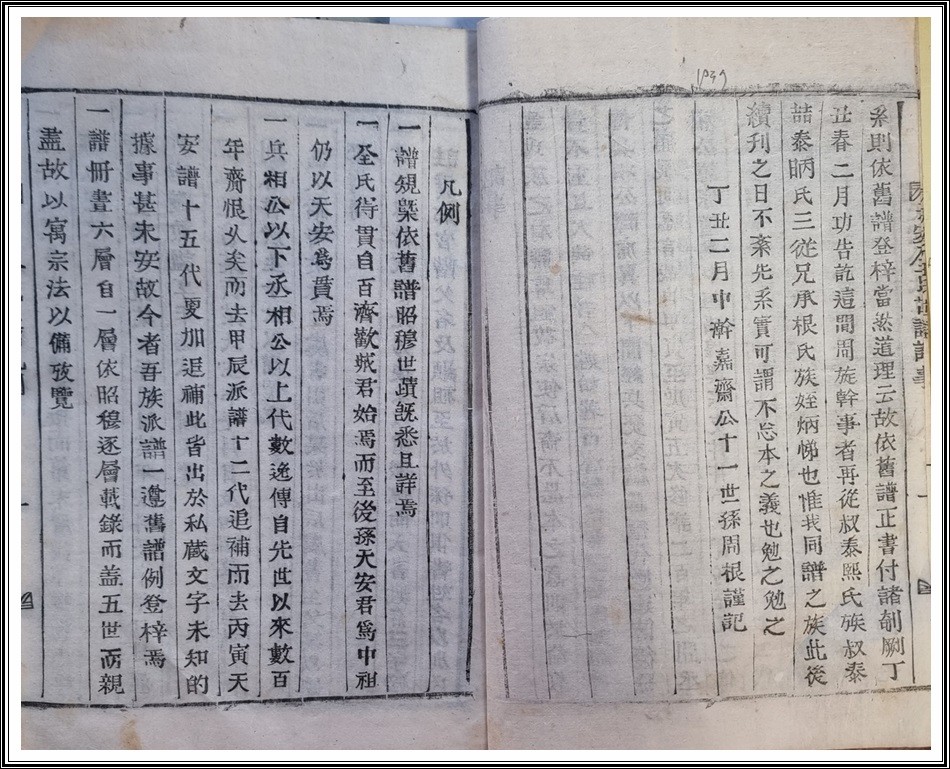 1937
系則依舊譜登梓當然道理云故依舊譜正書付諸剞劂丁
丑春二月功告訖這間周旋幹事者再從叔泰熙氏族叔泰
喆泰昞氏三從兄承根氏族姪炳悌也惟我同譜之族此後
續刊之日不紊先系實可謂不忘本之義也勉之勉之
丁丑二月中澣嘉齋公十一世孫周根謹記
凡例
一譜規槩依舊譜昭穆世蹟旣悉且詳焉
一全氏得貫自百濟歡城君始焉而至後孫天安君爲中祖
仍以天安爲貫焉
一兵相公以下丞相公以上代數逸傳自先世以來數百
年齎恨久矣而去甲辰派譜十二代追補而去丙寅天
安譜十五代更加追補此皆出於私藏文字未知的
據事甚未安故今者吾族派譜一遵舊譜例登梓焉
一譜冊晝六層自一層依昭穆逐層載錄而盖五世而親
盡故以寓宗法以備攷覽